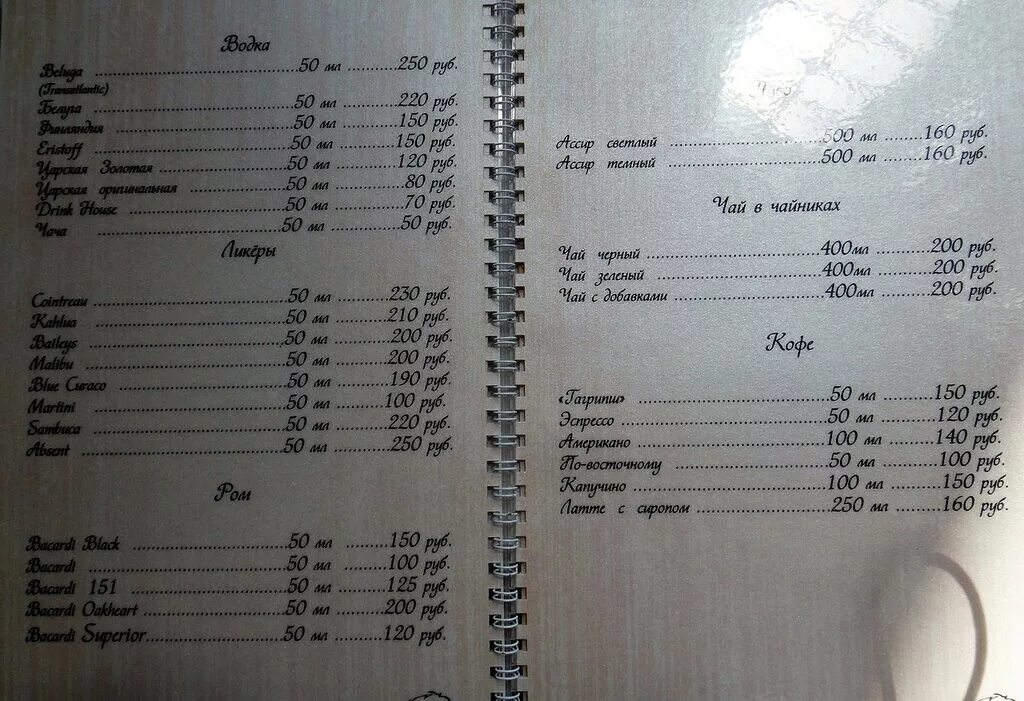 Водка
Beluga ........ 50 мл ........ 250 руб.
(Transatlantic)
Белуга ........ 50 мл ........ 220 руб.
Финляндия ........ 50 мл ........ 150 руб.
Eristoff ........ 50 мл ........ 150 руб.
Царская Золотая ........ 50 мл ........ 120 руб.
Царская оригинальная ........ 50 мл ........ 80 руб.
Drink House ........ 50 мл ........ 70 руб.
Чача ........ 50 мл ........ 50 руб.
Ликёры
Cointreau ........ 50 мл ........ 230 руб.
Kahlua ........ 50 мл ........ 210 руб.
Baileys ........ 50 мл ........ 200 руб.
Malibu ........ 50 мл ........ 200 руб.
Blue Curaco ........ 50 мл ........ 190 руб.
Martini ........ 50 мл ........ 100 руб.
Sambuca ........ 50 мл ........ 220 руб.
Absent ........ 50 мл ........ 250 руб.
Ром
Bacardi Black ........ 50 мл ........ 150 руб.
Bacardi ........ 50 мл ........ 100 руб.
Bacardi 151 ........ 50 мл ........ 125 руб.
Bacardi Oakheart ........ 50 мл ........ 200 руб.
Bacardi Superior ........ 50 мл ........ 120 руб.
Ассир светлый ........ 500 мл ........ 160 руб.
Ассир темный ........ 500 мл ........ 160 руб.
Чай в чайниках
Чай черный ........ 400мл ........ 200 руб.
Чай зеленый ........ 400мл ........ 200 руб.
Чай с добавками ........ 400мл ........ 200 руб.
Кофе
«Гагрипш» ........ 50 мл ........ 150 руб.
Эспрессо ........ 50 мл ........ 120 руб.
Американо ........ 100 мл ........ 140 руб.
По-восточному ........ 50 мл ........ 100 руб.
Капучино ........ 100 мл ........ 150 руб.
Латте с сиропом ........ 250 мл ........ 160 руб.